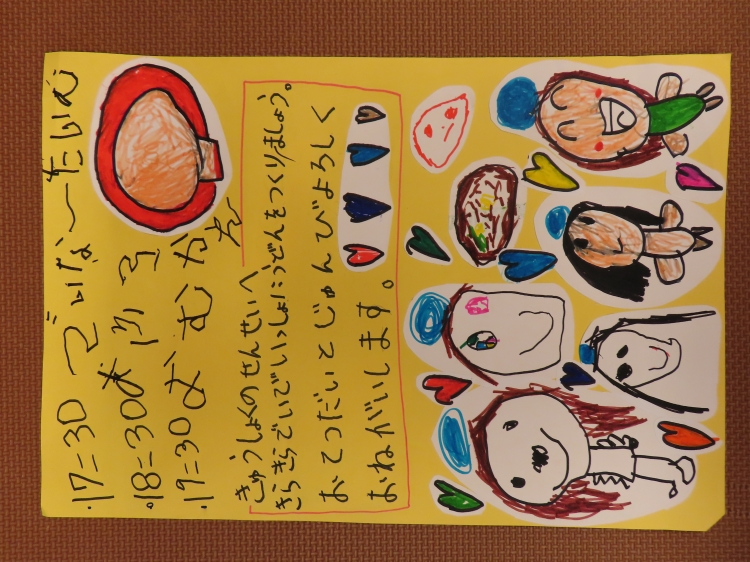 .17=30 でぃなーたいむ
.18=30 おふろ
.19=30 おむかえ
きゅうしょくのせんせいへ
きらきらでいでいっしょにうどんをつくりましょう。
おてつだいとじゅんびよろしく
おねがいします。